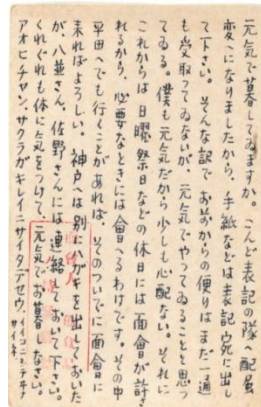 元気で暮してゐますか。こんど表記の隊へ配属
変へになりましたから、手紙などは表記宛に出し
て下さい。そんな訳で、お前からの便りはまだ一通
も受取ってゐないが、元気でやってゐることと思っ
てゐる。僕も元気だから少しも心配ない。それに
これからは日曜祭日などの休日には面會が許さ
れるから、必要なときには會へるわけです。その中
平田へでも行くことがあれば、そのついでに面會に
来ればよろしい。神戸へは別にハガキを出しておいた
が、八並さん、佐野さんには連絡しておいて下さい。
くれぐれも体に気をつけて、元気でお暮しなさい。
アオヒチヤン、サクラガキレイニサイタデセウ、イイコニシテヰナ
サイネ